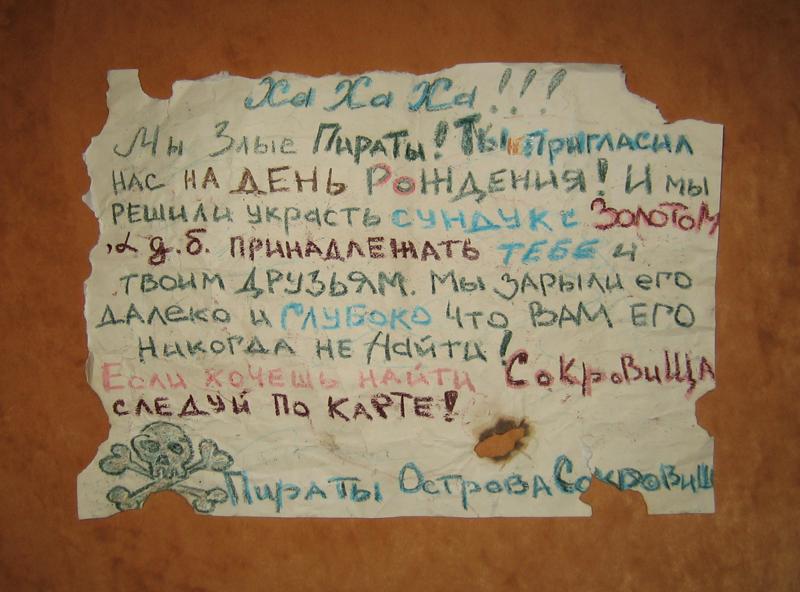 Ха Ха Ха!!!
Мы Злые Пираты! Ты пригласил
нас на ДЕНЬ Рождения! И мы
решили украсть сундук с Золотом
, д.б. принадлежать тебе и
твоим друзьям. Мы зарыли его
далеко и глубоко что вам его
никогда не найти!
Если хочешь найти Сокровища
следуй по карте!
Пираты Острова Сокровищ